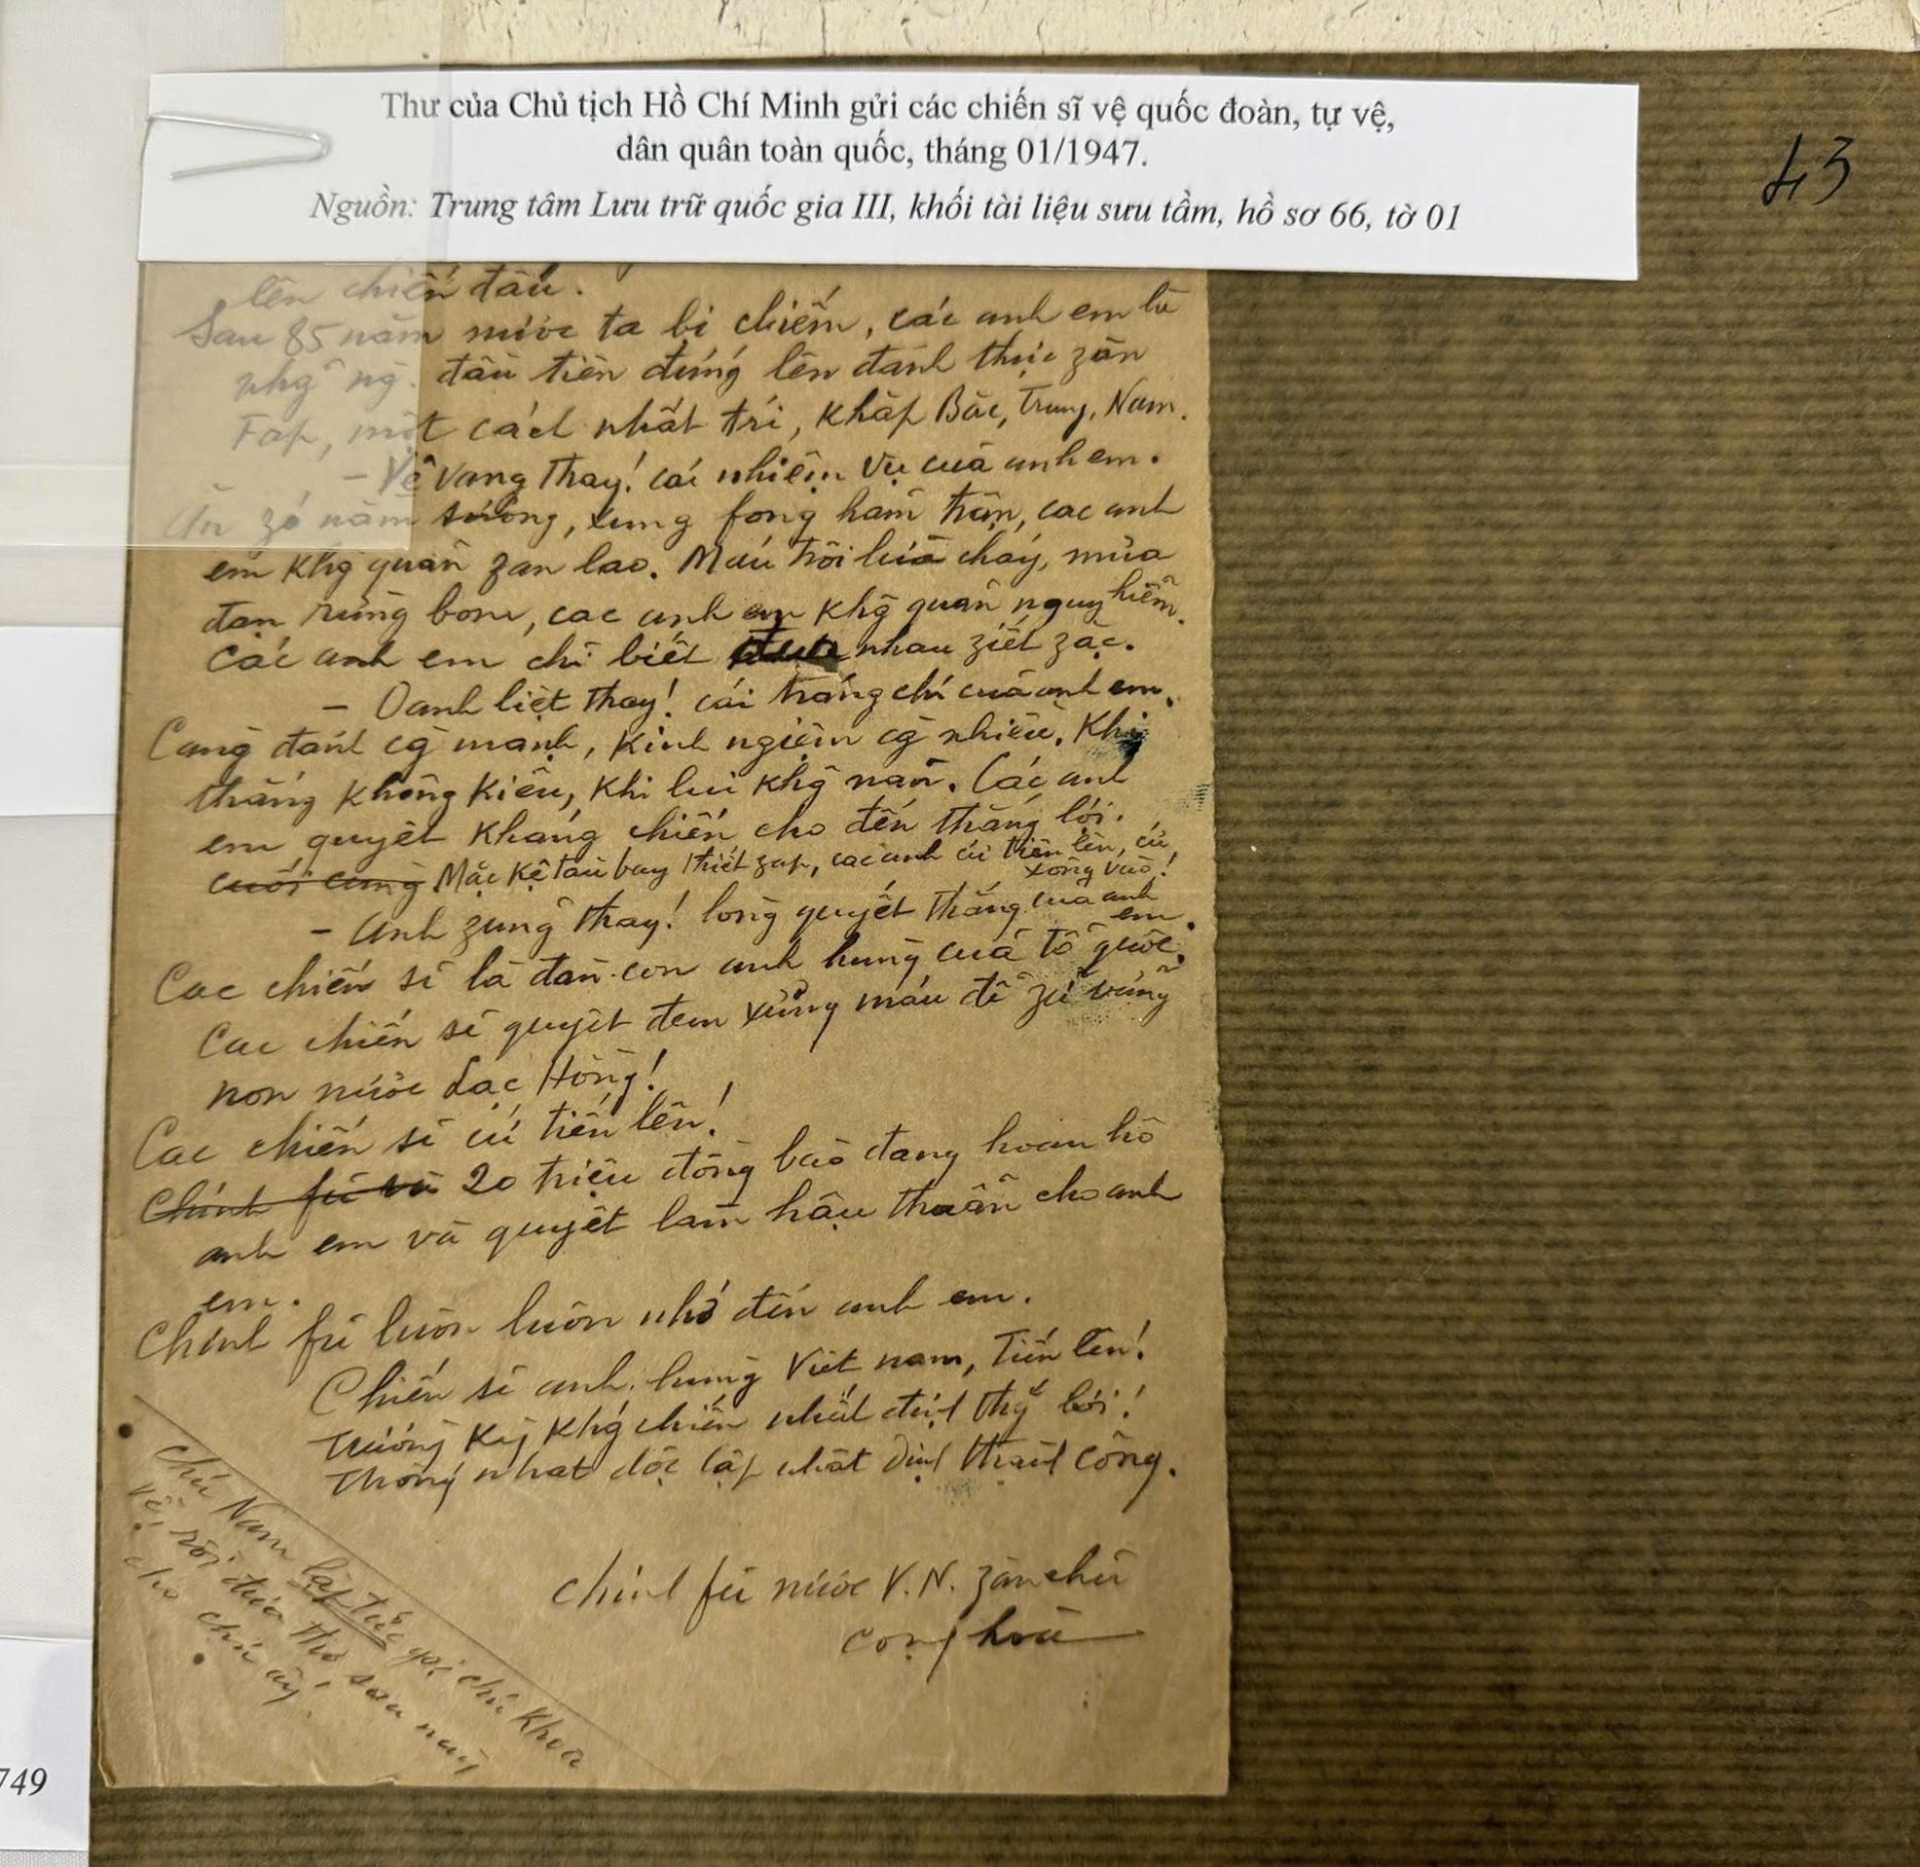 Thư của Chủ tịch Hồ Chí Minh gửi các chiến sĩ vệ quốc đoàn, tự vệ,
dân quân toàn quốc, tháng 01/1947.
Nguồn: Trung tâm Lưu trữ quốc gia III, khối tài liệu sưu tầm, hồ sơ 66, tờ 01
43
lên chiến đấu.
Sau 85 năm nước ta bị chiếm, các anh em là
nhg~ ng. đầu tiên đứng lên đánh thực zân
Fap, một cách nhất trí, khắp Bắc, Trung, Nam.
- Vẻ vang thay! cái nhiệm vụ của anh em.
Ăn zó nằm sương, xung fong hãm trận, các anh
em khg quản zan lao. Máu trôi lửa cháy, mưa
đạn rừng bom, các anh em khg quản nguy hiểm.
Các anh em chỉ biết đua nhau ziết zặc.
- Oanh liệt thay! cái tráng chí của anh em.
Càng đánh cg mạnh, kinh ngiệm cg nhiều. Khi
thắng không kiêu, khi lui khg nản. Các anh
em quyết kháng chiến cho đến thắng lợi.
cuối cùng Mặc kệ tàu bay thiết zap, các anh cứ tiến lên, cứ
xông vào!
- Anh zũng thay! lòng quyết thắng của anh
em.
Các chiến sĩ là đàn con anh hùng của tổ quốc.
Các chiến sĩ quyết đem xương máu để zữ vững
non nước Lạc Hồng!
Các chiến sĩ cứ tiến lên!
Chính fủ và 20 triệu đồng bào đang hoan hô
anh em và quyết làm hậu thuẫn cho anh
em.
Chính fủ luôn luôn nhớ đến anh em.
Chiến sĩ anh hùng Việt nam, Tiến lên!
Trường kỳ khg chiến nhất định thg lợi!
Thống nhất độc lập nhất định thành công.
Chính fủ nước V.N. zân chủ
cộng hoà
Chú Nam lập tức gọi chú Khoa
về, rồi đưa thư sau này
cho chú ấy!
749